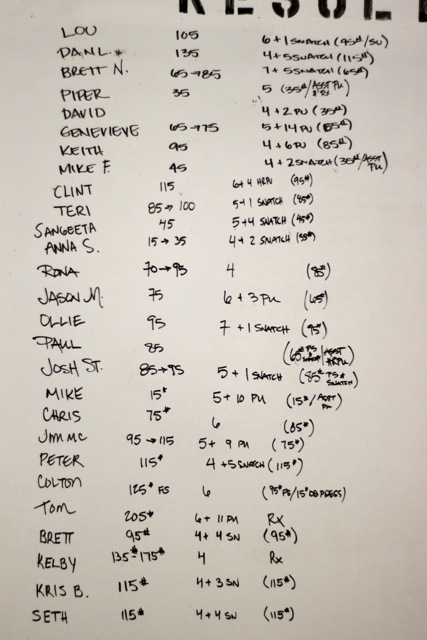 RESUL
LOU 105 6+1 SNATCH (95#/SU)
DAN L. 135 4+5 SNATCH (115#)
BRETT N. 65→85 7+5 SNATCH (65#)
PIPER 35 5 (35#/ASST PU
DAVID 4+2 PU (35#)
GENEVIEVE 65→75 5+14 PU (55#)
KEITH 95 4+6 PU (85#)
MIKE F. 45 4+2 SNATCH (35#/ASST PU)
CLINT 115 6+4 HRPU (95#)
TERI 85→100 5+1 SNATCH (85#)
SANGEETA 45 5+4 SNATCH (45#)
ANNA S. 15→35 4+2 SNATCH (35#)
RONA 70→95 4 (85#)
JASON M. 75 6+3 PU (65#)
OLLIE 95 7+1 SNATCH (95#)
PAUL 85 (65# PS ASST HRPU)
JOSH ST. 85→95 5+1 SNATCH (85# PS & SNATCH)
MIKE 15# 5+10 PU (15#/ASST PU)
CHRIS 75# 6 (65#)
JIM MC 95→115 5+9 PU (75#)
PETER 115# 4+5 SNATCH (115#)
COLTON 125# FS 6 (75# PS/15# DB PRESS)
TOM 205# 6+11 PU Rx
BRETT 95# 4+4 SN (95#)
KELBY 135#-175# 4 Rx
KRIS B. 115# 4+3 SN (115#)
SETH 115# 4+4 SN (115#)